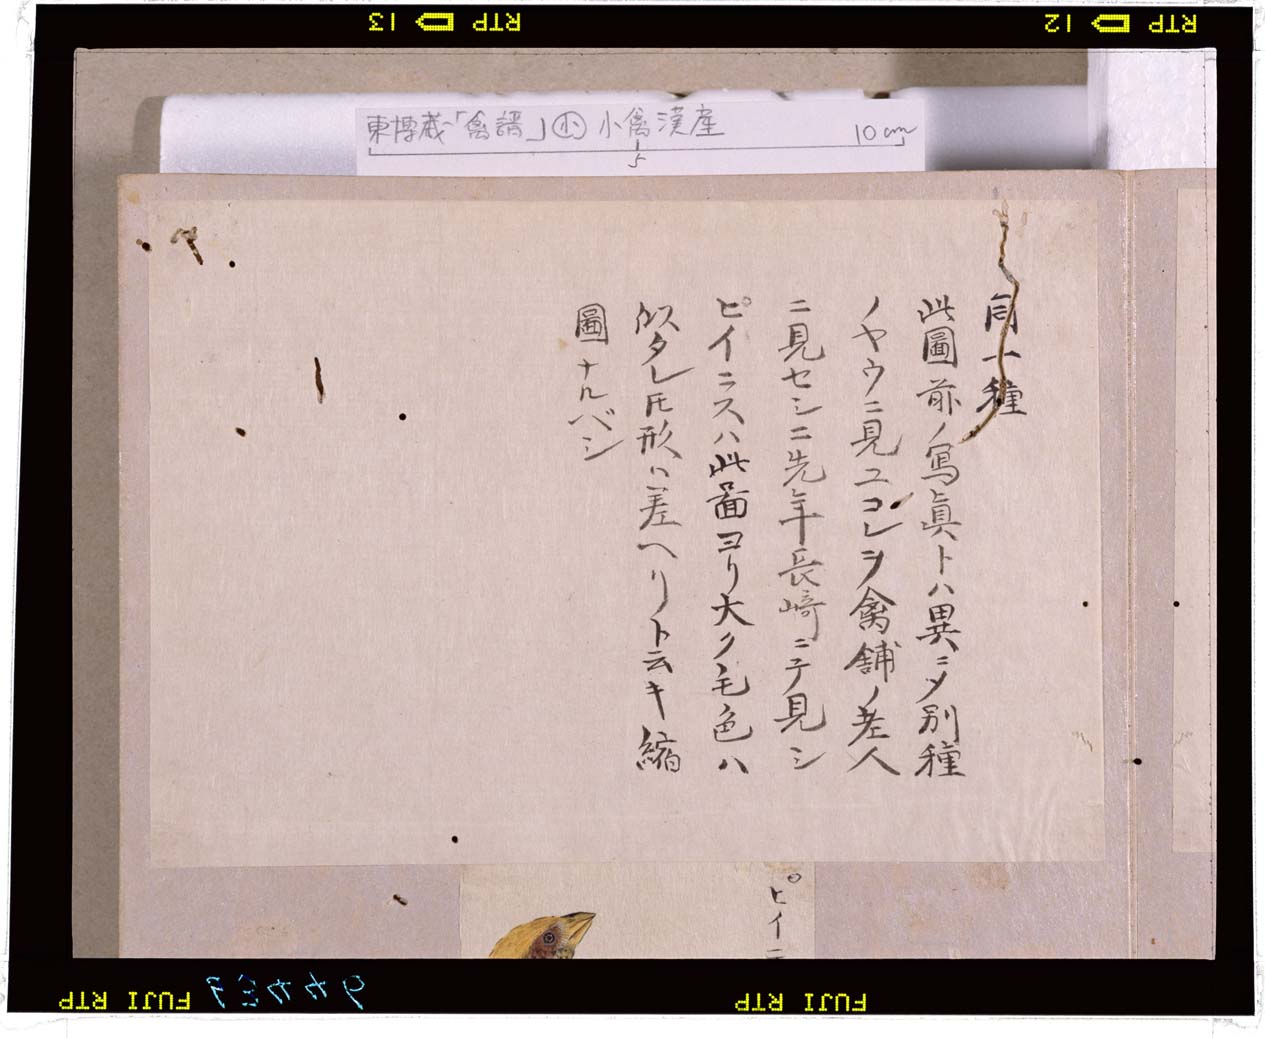 RTP 13
RTP 12
東博蔵「禽譜」㊥ 小禽漢産
5
10cm
同一種
此圖前ノ寫眞トハ異ニメ別種
ノヤウニ見ユコレヲ禽舗ノ老人
ニ見セシニ先年長﨑ニテ見シ
ピイニスハ此啚ヨリ大ク毛色ハ
似タレ𪜈形ハ差ヘリト云キ縮
圖ナルベシ
ピイニ
FUJI RTP
FUJI RTP